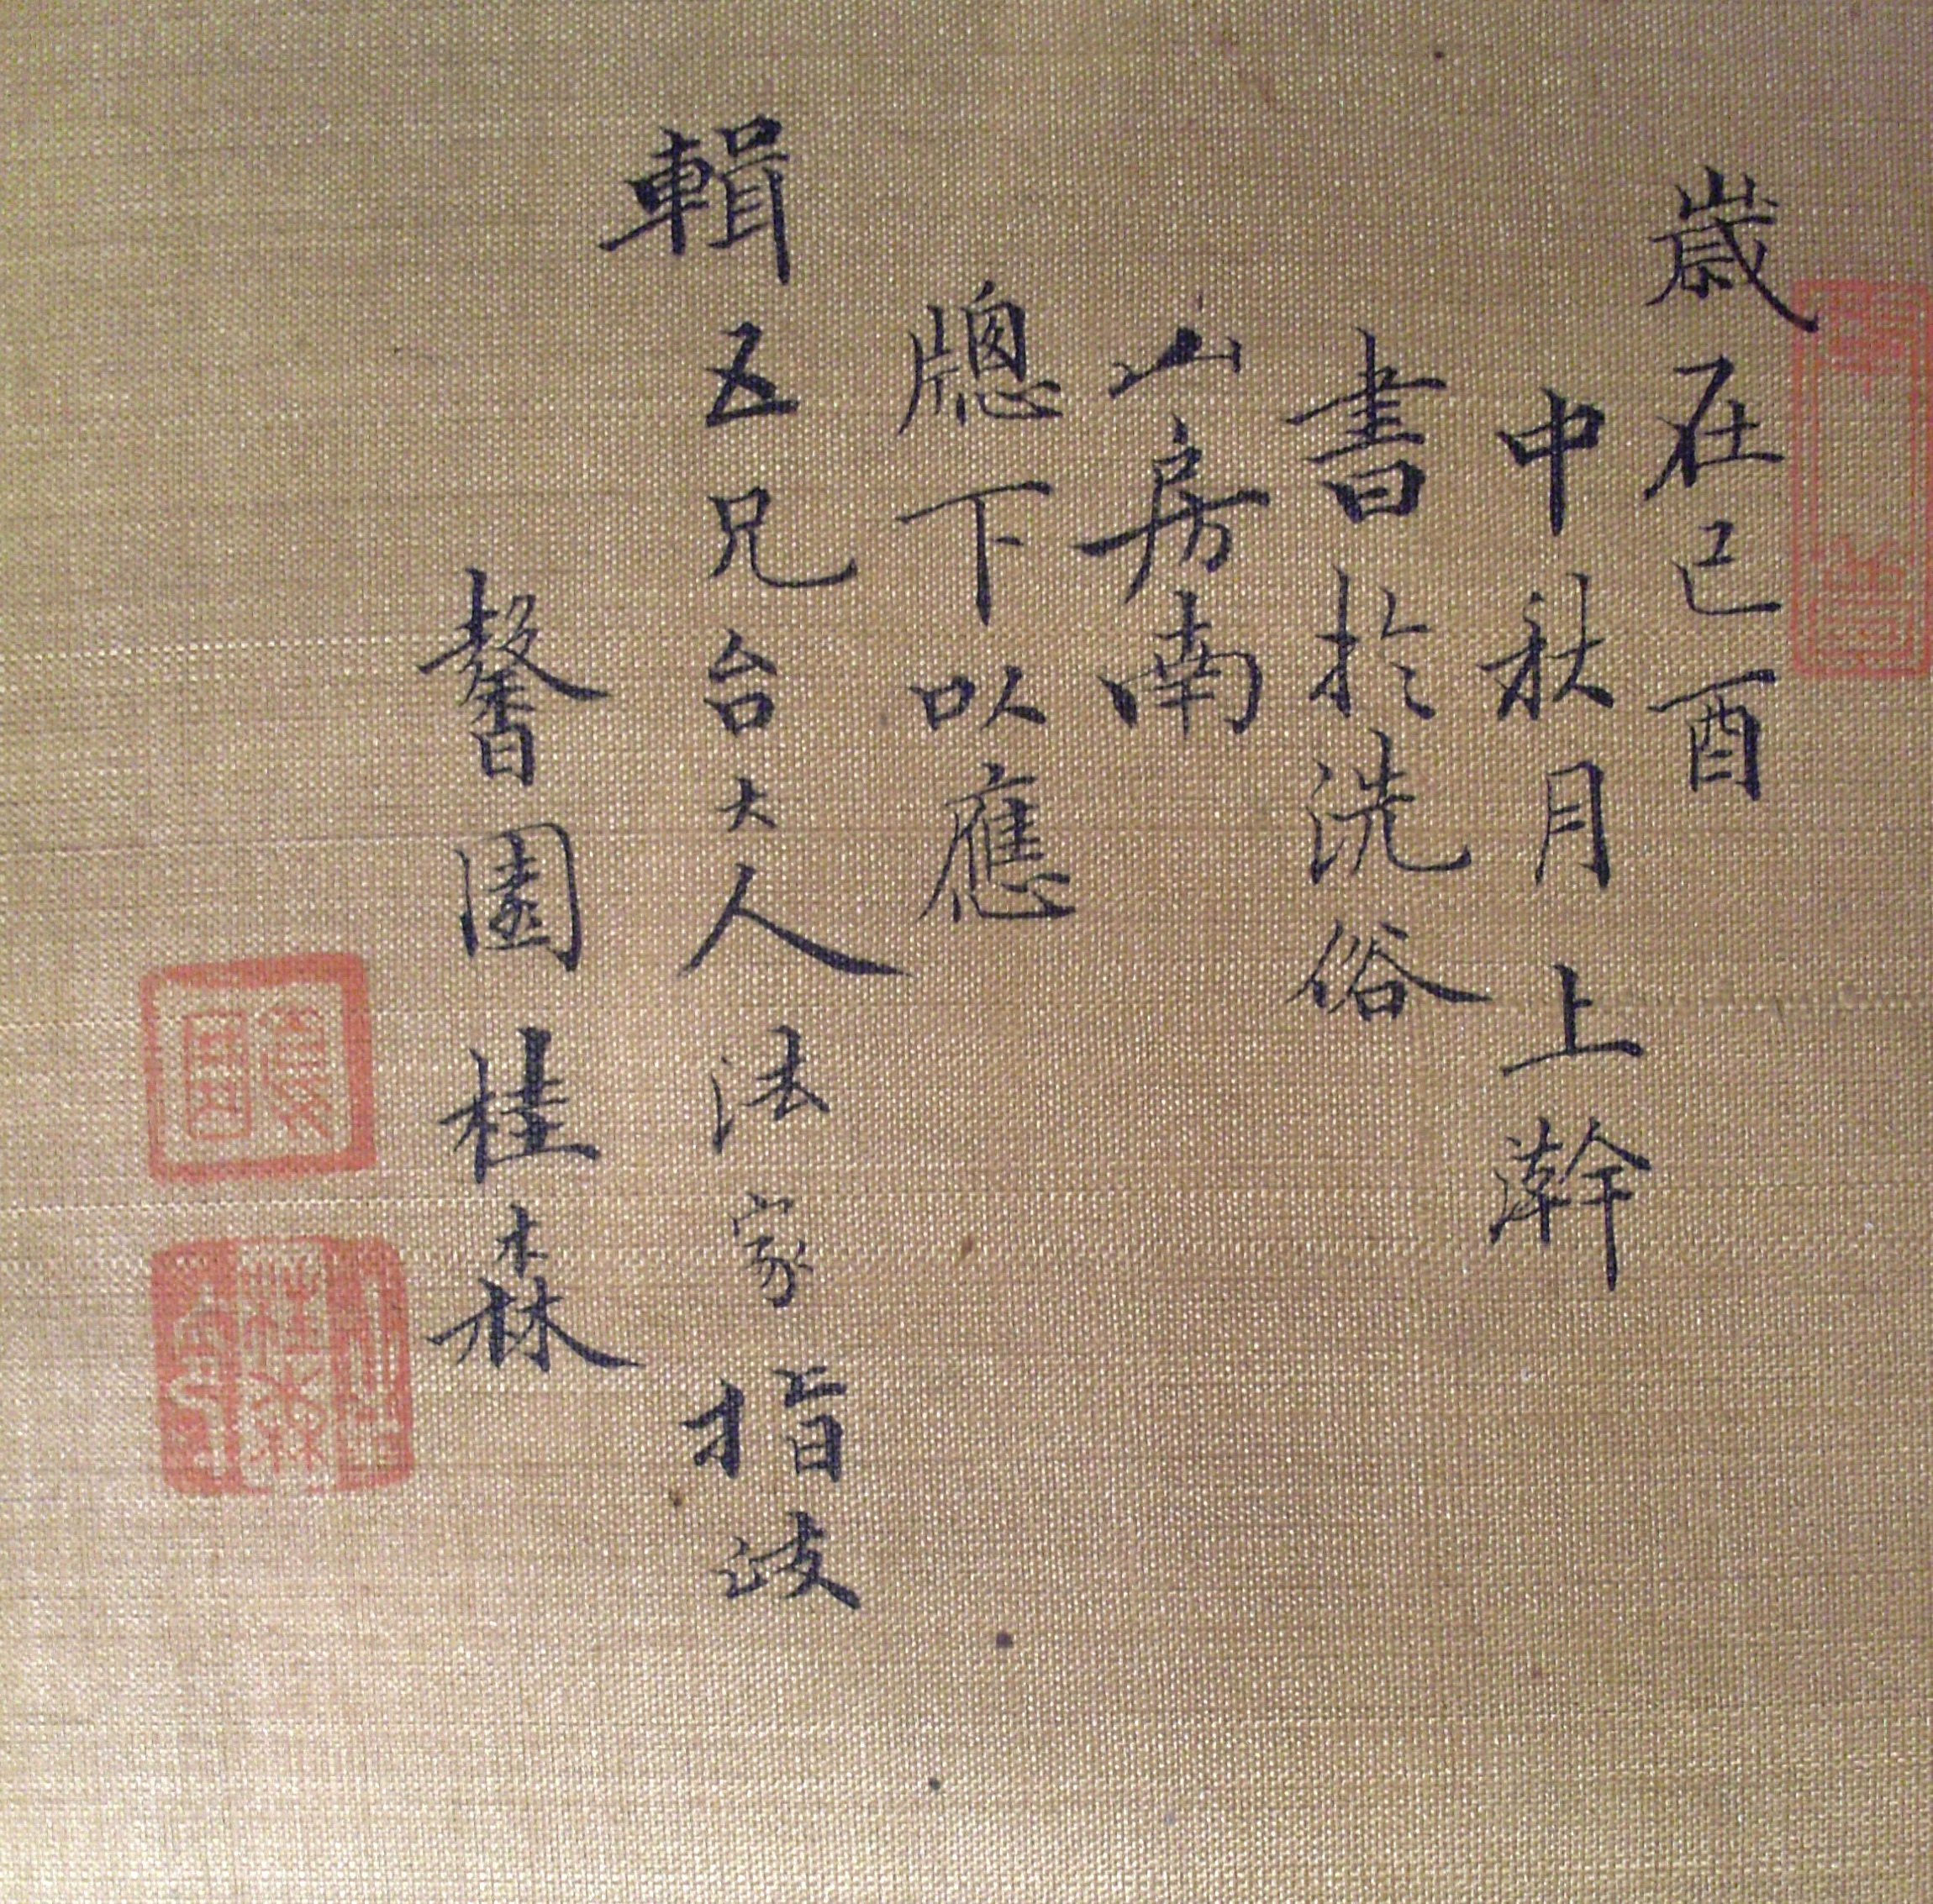 歲在己酉
中秋月上澣
書於洗俗
山房南
牕下以應
輯五兄台大人法家指政
馨園桂森